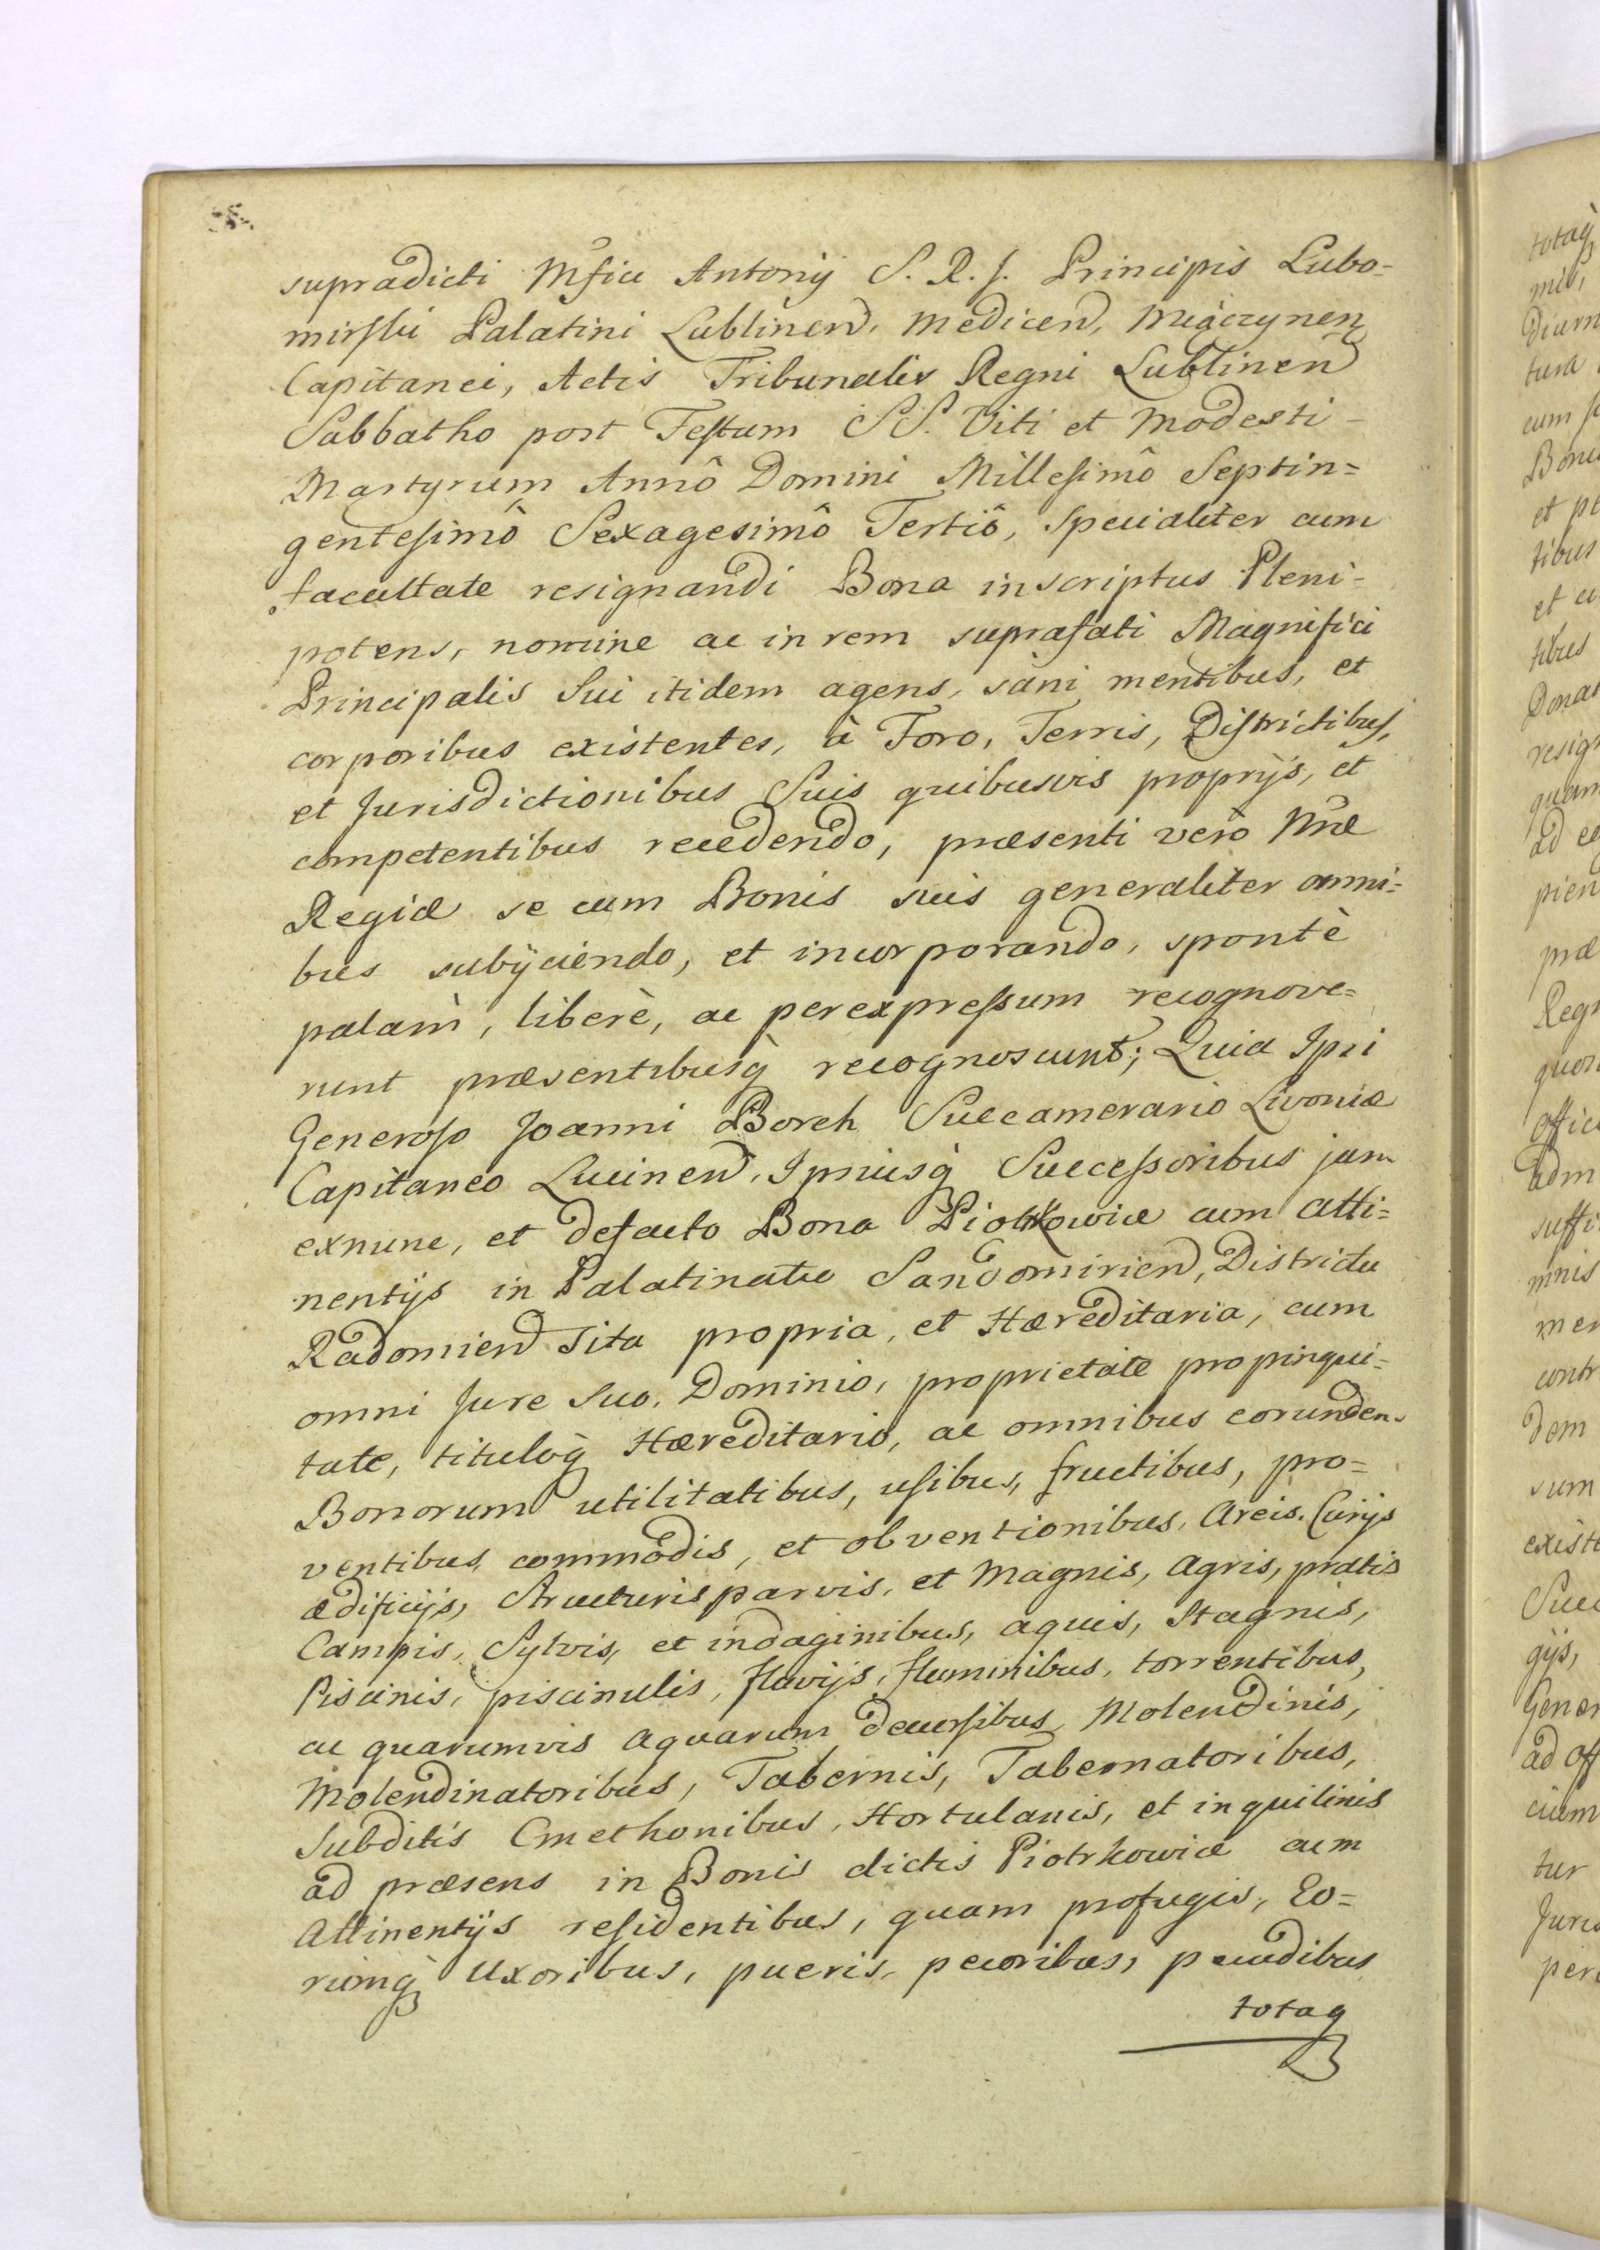 supradicti Mfici Antonij S. R. J. Principis Lubo=
mirski Palatini Lublinen, Medicen, Mięczynen
Capitanei, Actis Tribunalis Regni Lublinen
Sabbatho post Festum SS. Viti et Modesti -
Martyrum Annô Domini Millesimô Septin=
gentesimô Sexagesimô Tertiô, specialiter cum
facultate resignandi Bona inscriptus Pleni=
potens, nomine ac in rem suprafati Magnifici
Principalis Sui itidem agens, sani mentibus, et
corporibus existentes, à Foro, Terris, Districtibus,
et Jurisdictionibus Suis quibusvis proprijs, et
competentibus recedendo, præsenti verò
Regiæ se cum Bonis suis generaliter omni=
bus subijciendo, et incorporando, spontè
palàm, liberè, ac per expressum recognove=
runt præsentibusq̀ recognoscunt; Quia Ipsi
Generoso Joanni Borch Succamerario Livoniæ
Capitaneo Lucinen, Ipsiusq̀ Successoribus jam
exnunc, et defacto Bona Piotrkowice cum Atti=
nentijs in Palatinatu Sandomirien, Districtu
Radomien sita propria, et Hæreditaria, cum
omni Jure suo, Dominio, proprietate propinqui=
tate, tituloq̀ Hæreditario, ac omnibus eorundem
Bonorum utilitatibus, usibus, fructibus, pro=
ventibus commodis, et obventionibus, Areis, Curijs
ædificijs, Structuris parvis, et Magnis, Agris, pratis
Campis, Sylvis, et indaginibus, aquis, Stagnis,
Piscinis, piscinulis, fluvijs, fluminibus, torrentibus,
ac quarumvis aquarum decursibus, Molendinis,
Molendinatoribus, Tabernis, Tabernatoribus,
Subditis Cmethonibus, Hortulanis, et inquilinis
ad præsens in Bonis dictis Piotrkowice cum
Attinentijs residentibus, quam profugis, Eo=
rumq̀ Uxoribus, pueris, pecoribus, pecudibus
totaq